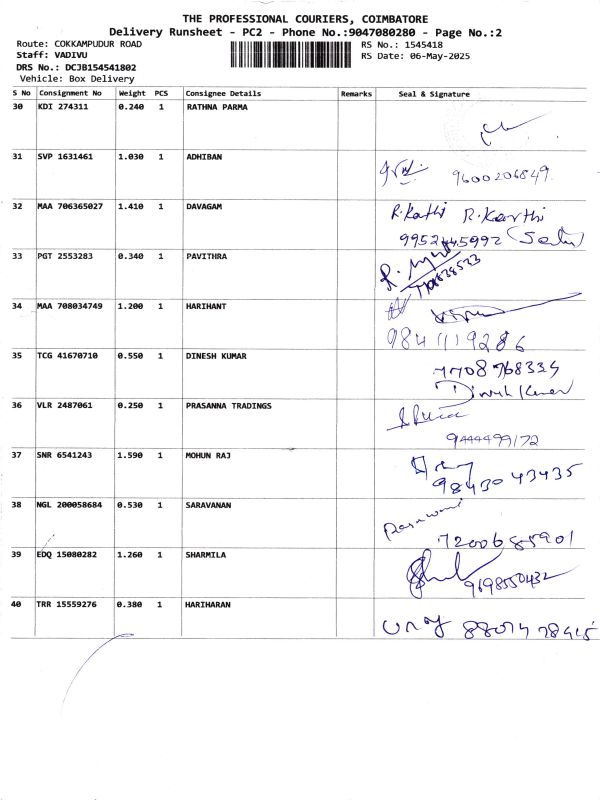 THE PROFESSIONAL COURIERS, COIMBATORE
Delivery Runsheet - PC2 - Phone No.:9047080280 - Page No.:2
Route: COKKAMPUDUR ROAD
Staff: VADIVU
DRS No.: DCJB154541802
Vehicle: Box Delivery
RS No.: 1545418
RS Date: 06-May-2025
S No Consignment No Weight PCS Consignee Details Remarks Seal & Signature
30 KDI 274311 0.240 1 RATHNA PARMA
31 SVP 1631461 1.030 1 ADHIBAN
9600206849
32 MAA 706365027 1.410 1 DAVAGAM
R.Kathi R.Karthi
9952445992
33 PGT 2553283 0.340 1 PAVITHRA
34 MAA 708034749 1.200 1 HARIHANT
9841119286
35 TCG 41670710 0.550 1 DINESH KUMAR
7708768334
Dinesh Kumar
36 VLR 2487061 0.250 1 PRASANNA TRADINGS
9444499172
37 SNR 6541243 1.590 1 MOHUN RAJ
9843043435
38 NGL 200058684 0.530 1 SARAVANAN
7200685901
39 EDQ 15080282 1.260 1 SHARMILA
9698550432
40 TRR 15559276 0.380 1 HARIHARAN